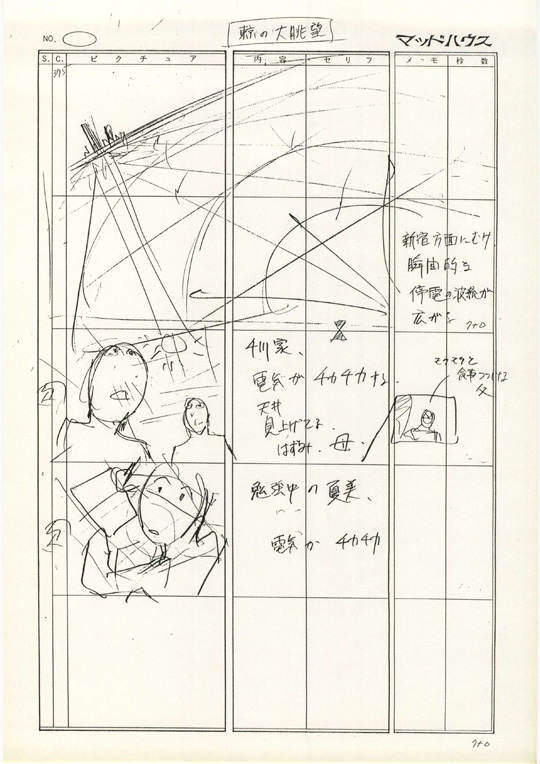 東京の大眺望
NO.
マッドハウス
S. C. ピクチュア 内容 セリフ メモ 秒数
新宿方面にむけ
瞬間的な
停電の波紋が
広がる
7+0
電気が チカチカする。
天井
見上げてる
はずみ、母。
モクモクと
食事つづける
父
勉強中の夏美、
電気が チカチカ
7+0